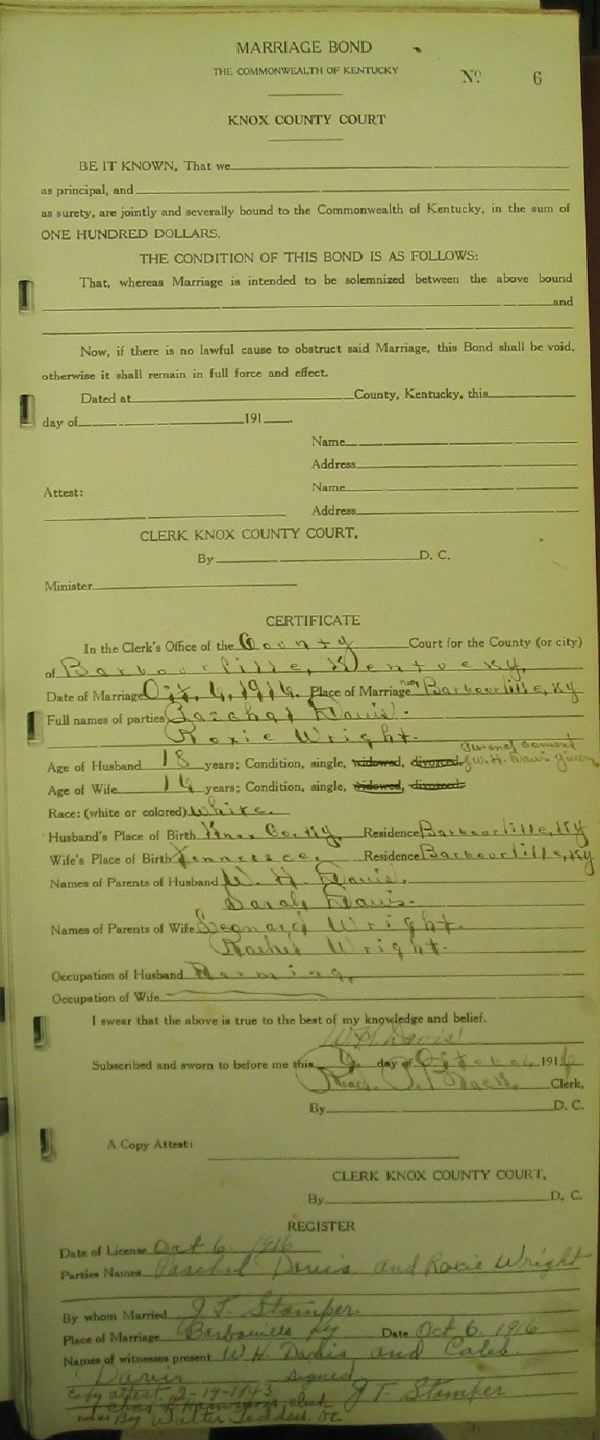 MARRIAGE BOND
THE COMMONWEALTH OF KENTUCKY
No. 6
KNOX COUNTY COURT
BE IT KNOWN, That we
as principal, and
as surety, are jointly and severally bound to the Commonwealth of Kentucky, in the sum of
ONE HUNDRED DOLLARS.
THE CONDITION OF THIS BOND IS AS FOLLOWS:
That, whereas Marriage is intended to be solemnized between the above bound
and
Now, if there is no lawful cause to obstruct said Marriage, this Bond shall be void,
otherwise it shall remain in full force and effect.
Dated at County, Kentucky, this
day of 191 .
Name
Address
Attest: Name
Address
CLERK KNOX COUNTY COURT,
By D. C.
Minister
CERTIFICATE
In the Clerk's Office of the County Court for the County (or city)
of Barbourville, Kentucky,
Date of Marriage Oct. 6, 1916. Place of Marriage Barbourville, Ky
Full names of parties Paschal Davis.
Roxie Wright.
Age of Husband 18 years; Condition, single, widowed, divorced, W. H. Davis given
Age of Wife years; Condition, single, widowed, divorced.
Race: (white or colored) White.
Husband's Place of Birth Knox Co. Ky, Residence Barbourville, Ky
Wife's Place of Birth Tennessee, Residence Barbourville, Ky
Names of Parents of Husband W. H. Davis.
Sarah Davis.
Names of Parents of Wife Leonard Wright.
Rachel Wright.
Occupation of Husband Farming,
Occupation of Wife
I swear that the above is true to the best of my knowledge and belief.
W H Davis
Subscribed and sworn to before me this 6 day of October, 1916
Clerk,
By D. C.
A Copy Attest:
CLERK KNOX COUNTY COURT,
By D. C.
REGISTER
Date of License Oct 6 1916
Parties Names Paschal Davis and Roxie Wright
By whom Married J T. Stamper
Place of Marriage Barbourville Ky Date Oct 6. 1916
Names of witnesses present W H. Davis and Caleb
Davis signed
Copy attest. 2-19-1943 J T Stamper
clerk
By Walter DC